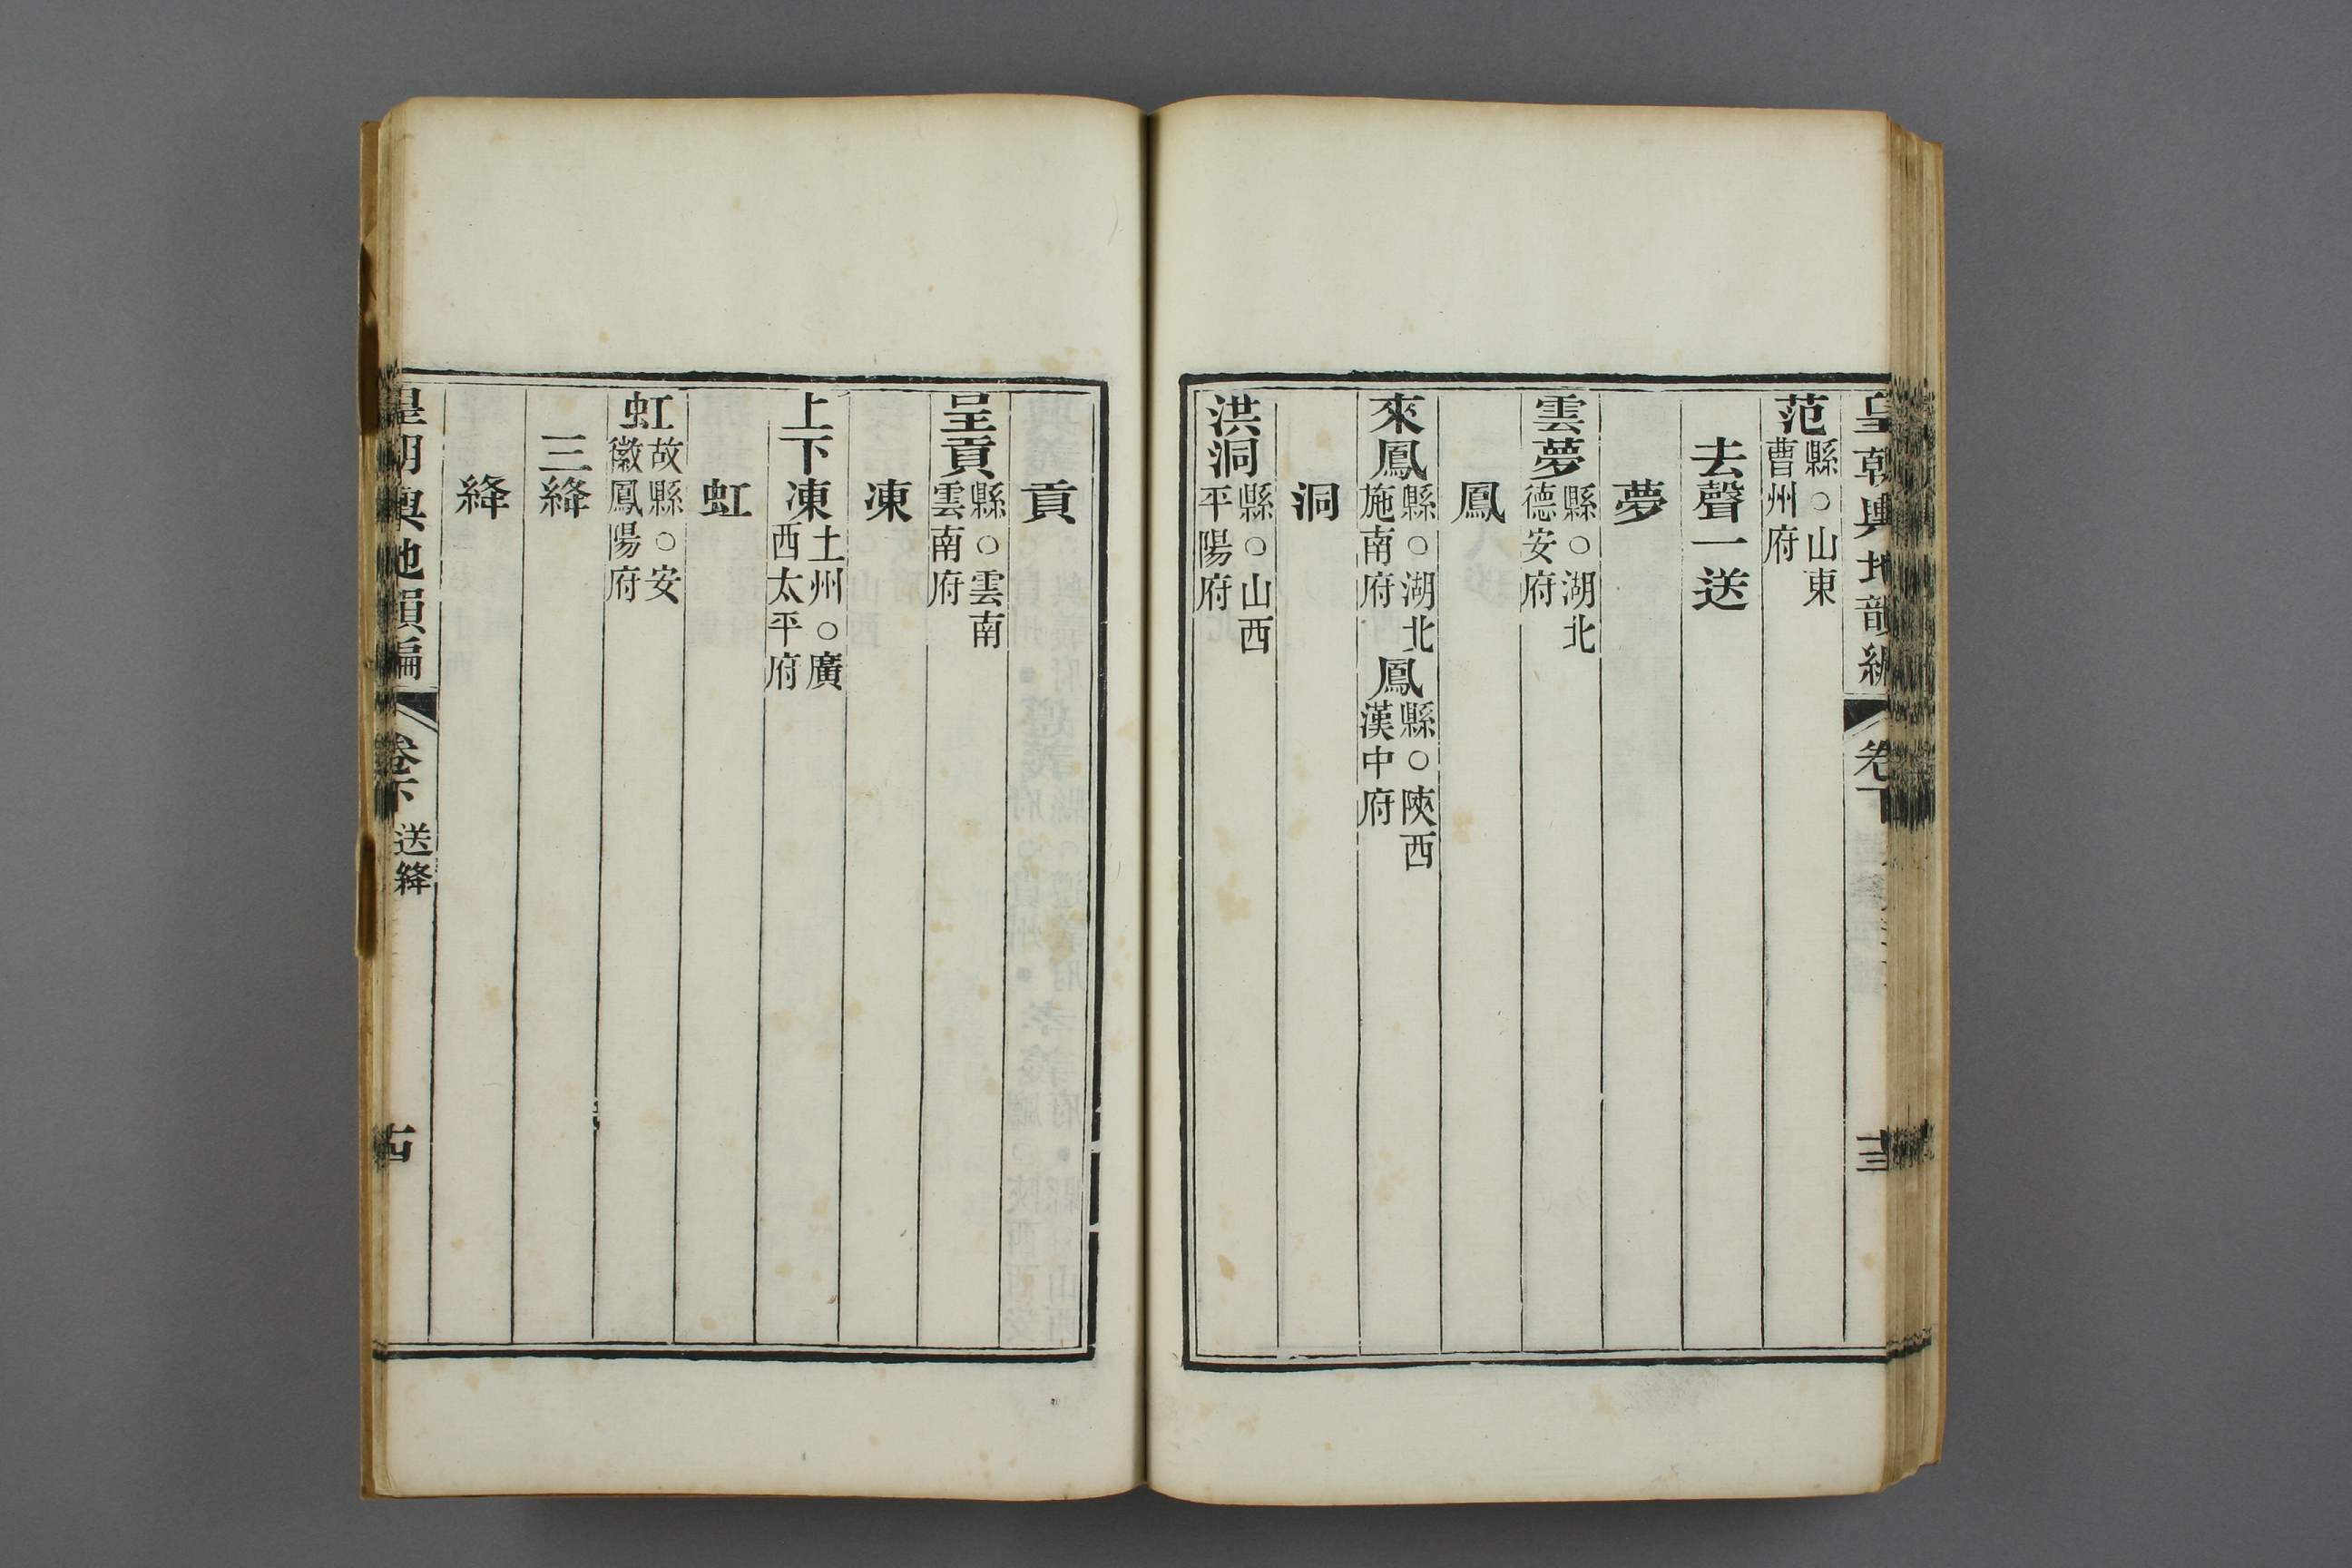 皇朝輿地韻編 卷下 十三
范縣○山東曹州府
去聲一送
夢
雲夢縣○湖北德安府
鳳
來鳳縣○湖北施南府鳳縣○陝西漢中府
洞
洪洞縣○山西平陽府
貢
呈貢縣○雲南雲南府
凍
上下凍土州○廣西太平府
虹
虹故縣○安徽鳳陽府
三絳
絳
皇朝輿地韻編 卷下 送絳 十四